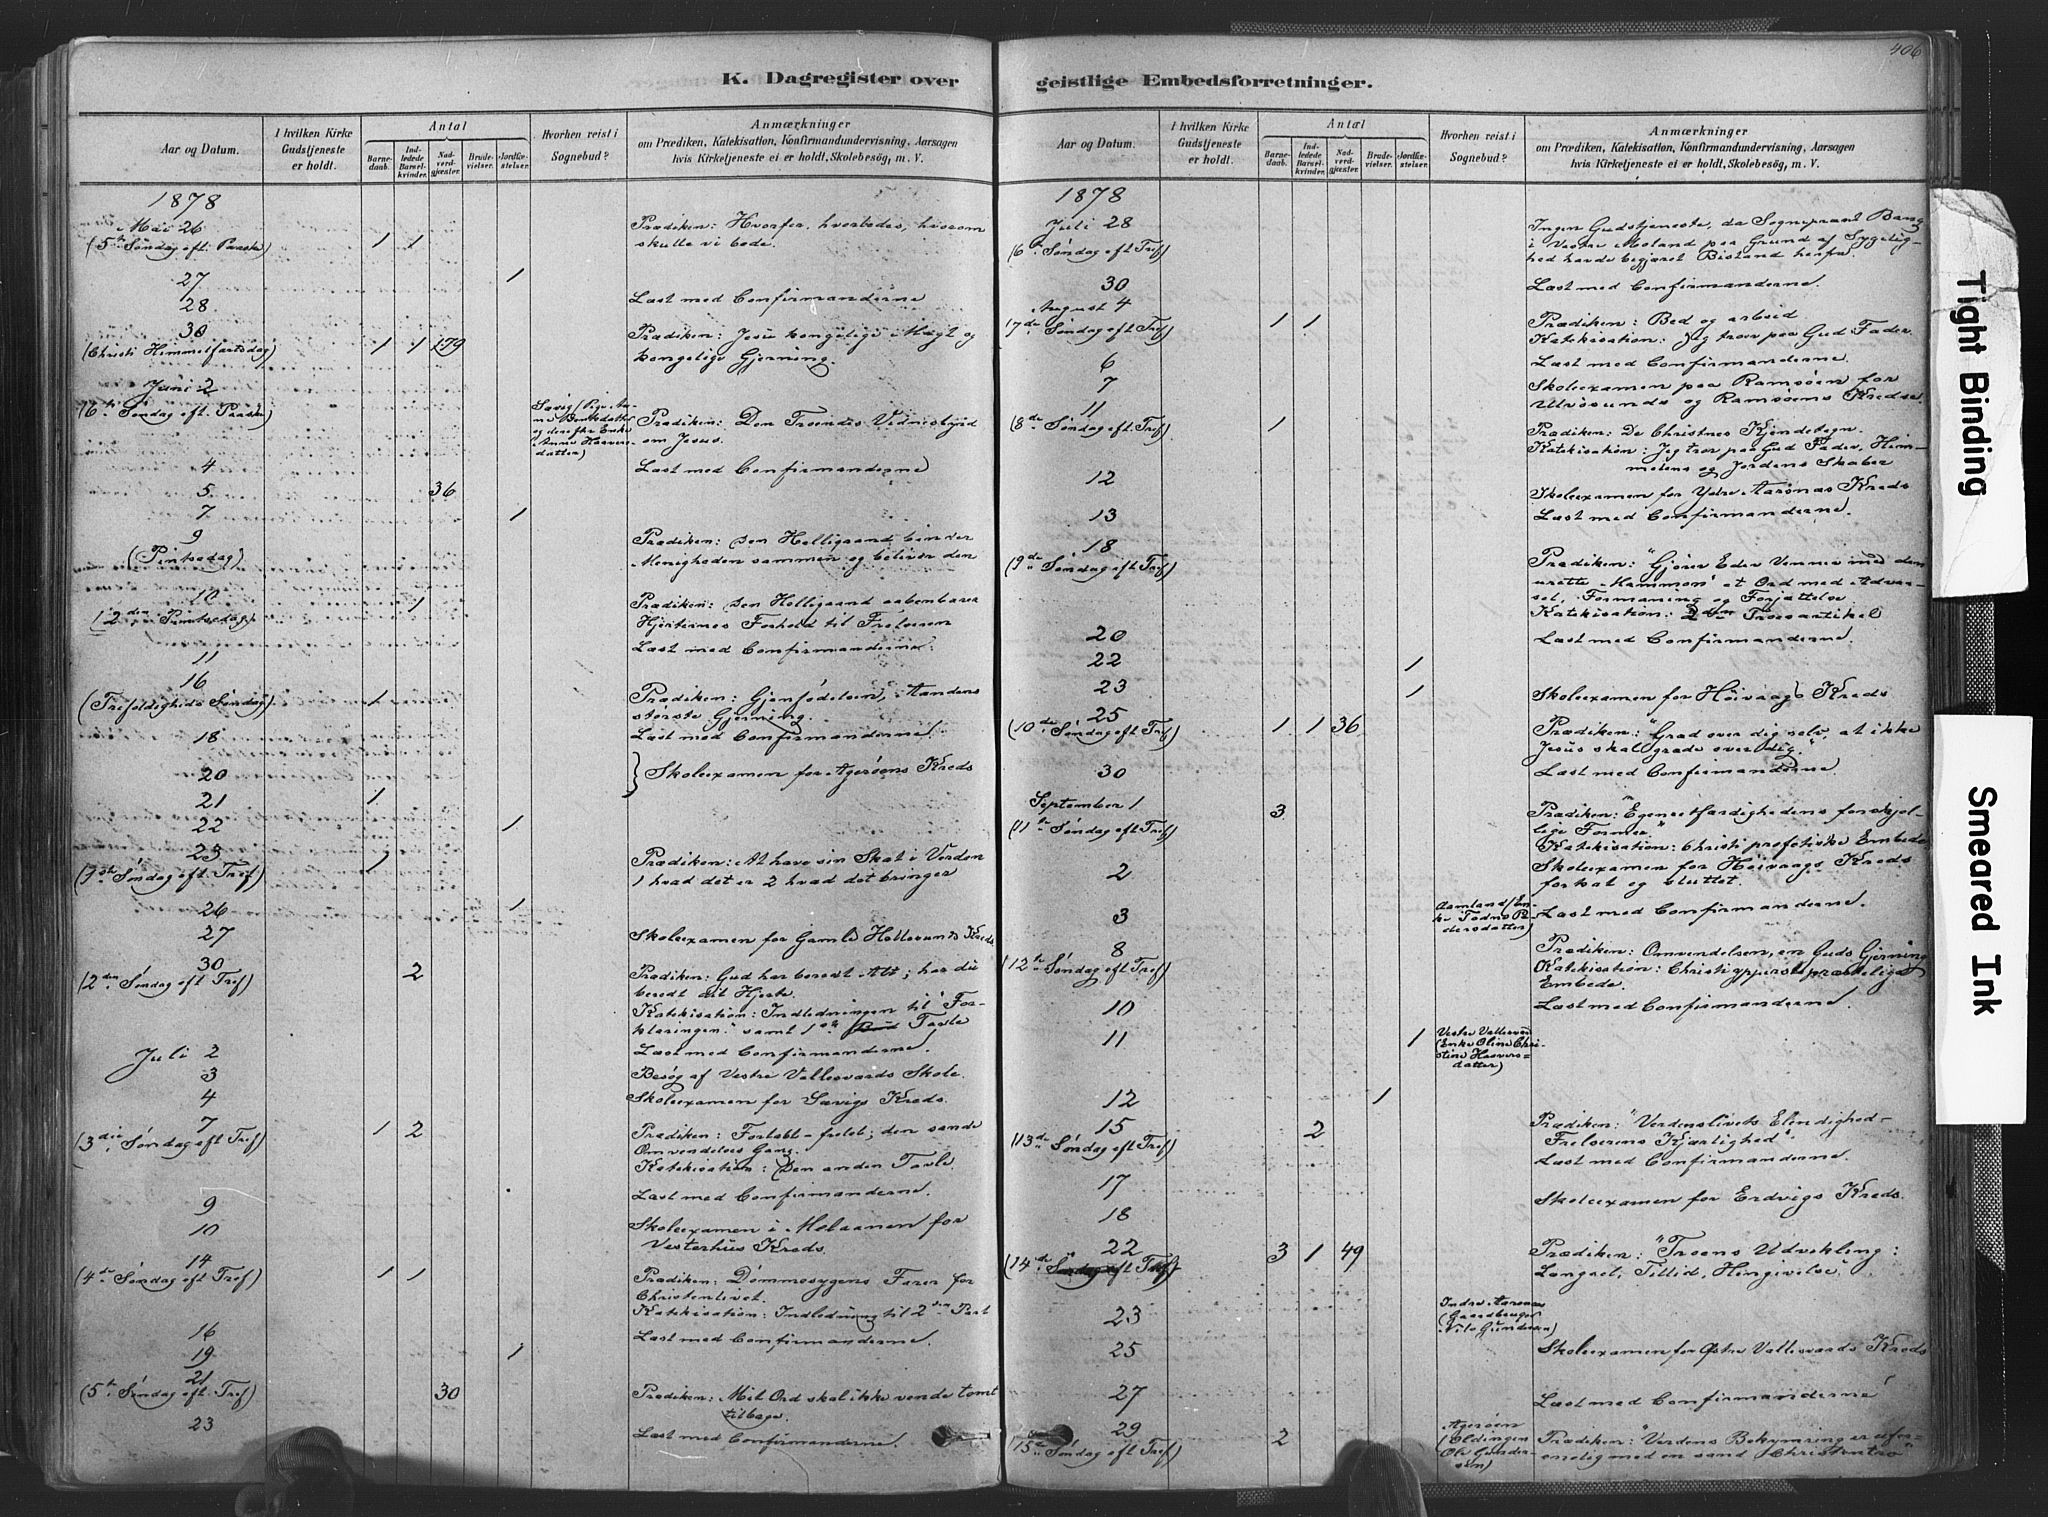 406
K. Dagregister over
geistlige Embedsforretninger.
Aar og Datum.
I hvilken Kirke Gudstjeneste er holdt.
Antal
Barnedaab.
Indledede Barselkvinder.
Nadverdgjæster.
Brudevielser.
Jordfæstelser.
Hvorhen reist i Sognebud?
Anmærkninger
om Prædiken, Katekisation, Konfirmandundervisning, Aarsagen
hvis Kirketjeneste ei er holdt, Skolebesög, m. V.
1878
Mai 26 Prædiken: Hvorfor, hvorledes, hvorom
(5te Søndag eft. Paaske) 1 1 skulle vi bede.
27 1
28 Læst med Confirmanderne
30 Prædiken: Jesu kongelige Magt og
(Christi Himmelfartsdag) 1 1 179 kongelige Gjerning.
Juni 2
(6te Søndag eft. Paaske) Prædiken: Den Troendes Vidnesbyrd
om Jesus.
4 Læst med Confirmanderne
5 36
7 1
9 Prædiken: Den Helligaand binder
(Pintsedag) Menigheden sammen og beliver den
10 1 Prædiken: Den Helligaand aabenbarer
(2den Pintsedag) Hjerternes Forhold til Frelseren
11 Læst med Confirmanderne
16
(Trefoldigheds Søndag) 1 Prædiken: Gjenfødelsen, Aandens
største Gjerning.
18 Læst med Confirmanderne
20 Skoleexamen for Agerøens Kreds
21 1
22 1
23 1 Prædiken: At have sin Skat i Verden
(1ste Søndag eft. Tref) 1 hvad det er 2 hvad det bringer
26 1
27 Skoleexamen for Gamle Hellesunds Kreds
30 2 Prædiken: Gud har beredt Alt; har du
(2den Søndag eft Tref) beredt dit Hjerte.
Katekisation: Indledningen til "For-
klaringen." samt 1ste Tavle
Juli 2 Læst med Confirmanderne.
3 Besøg af Vestre Vallesværds Skole.
4 Skoleexamen for Sævigs Kreds.
7 1 2 Prædiken: Fortabt-frelst; den sande
(3die Søndag eft Tref) Omvendelses Gang.
Katekisation: Den anden Tavle.
9 Læst med Confirmanderne.
10 Skoleexamen i for
Vesterhus Kreds.
14
(4de Søndag eft Tref) 1 1 Prædiken: Dømmesygens Farer for
Christenlivet.
Katekisation: Indledning til 2den Part
16 Læst med Confirmanderne.
19 1
21
(5te Søndag eft. Tref) 30 Prædiken: Mit Ord skal ikke vende tomt
tilbage.
23 Læst med Confirmanderne.
Aar og Datum.
I hvilken Kirke Gudstjeneste er holdt.
Antal
Barnedaab.
Indledede Barselkvinder.
Nadverdgjæster.
Brudevielser.
Jordfæstelser.
Hvorhen reist i Sognebud?
Anmærkninger
om Prædiken, Katekisation, Konfirmandundervisning, Aarsagen
hvis Kirketjeneste ei er holdt, Skolebesög, m. V.
1878
Juli 28 Ingen Gudstjeneste, da Sognepræst Bang
(6te Søndag eft Tref) i Vestre Moland paa Grund af Sygelig-
hed havde begjæret Bistand herfra.
30 Læst med Confirmanderne.
August 4 Prædiken: Bed og arbeid
(7de Søndag eft Tref) 1 1 Katekisation: Jeg tror paa Gud Fader.
6 Læst med Confirmanderne.
7 Skoleexamen paa Ramsøen for
Ulvøsunds og Ramsøens Kredse.
11
(8de Søndag eft Tref) 1 Prædiken: De Christnes Kjendetegn.
Katekisation: Jeg tror paa Gud Fader, Him-
melens og Jordens Skaber
12 Skoleexamen for Ydre Aarønæs Kreds
13 Læst med Confirmanderne.
18 Prædiken: "Gjører Eder Venner med den
(9de Søndag eft Tref) urette Mammon" et Ord med Advar-
sel, Formaning og Forjættelse
Katekisation: 2den Troesartikel
20 Læst med Confirmanderne.
22 1
23 1 Skoleexamen for Høivaags Kreds
25 Prædiken: "Græd over dig selv, at ikke
(10de Søndag eft Tref) 1 1 36 Jesus skal græde over dig."
30 Læst med Confirmanderne.
September 1 3 Prædiken: "Egenretfærdighedens forskjel-
(11te Søndag eft Tref) lige Former"
Katekisation: Christi profetiske Embede
2 Skoleexamen for Høivaags Kreds
forsat og sluttet.
3 Aamland (En- Læst med Confirmanderne.
8 Prædiken: Omvendelsen, en Guds Gjerning
(12te Søndag eft Tref) Katekisation: Christi ypperstepræstelige
Embede.
10 Læst med Confirmanderne.
11 1 Vestre Vallesværd
(Enke Oline Chri-
stine Haavors-
datter)
12 1
15 2 Prædiken: "Verdenslivets Elendighed-
(13de Søndag eft Tref) Frelserens Kjærlighed".
17 Læst med Confirmanderne.
18 Skoleexamen for Erdvigs Kreds.
22 3 1 49 Prædiken: "Troens Udvikling:
(14de Søndag eft Tref) Længsel, Tillid, Hengivelse".
23 Indre Aarønæs
(Gaardbruger
Nils Gundersen)
25 Skoleexamen for Østre Vallesværds Kreds
27 Læst med Confirmanderne
29 Agerøen
(15de Søndag eft Tref) 2 Prædiken: "Verdens Bekymring er ufor-
enelig med en sand Christentro"
(Oldingen
Ole Gunder-
sen)
Tight Binding
Smeared Ink